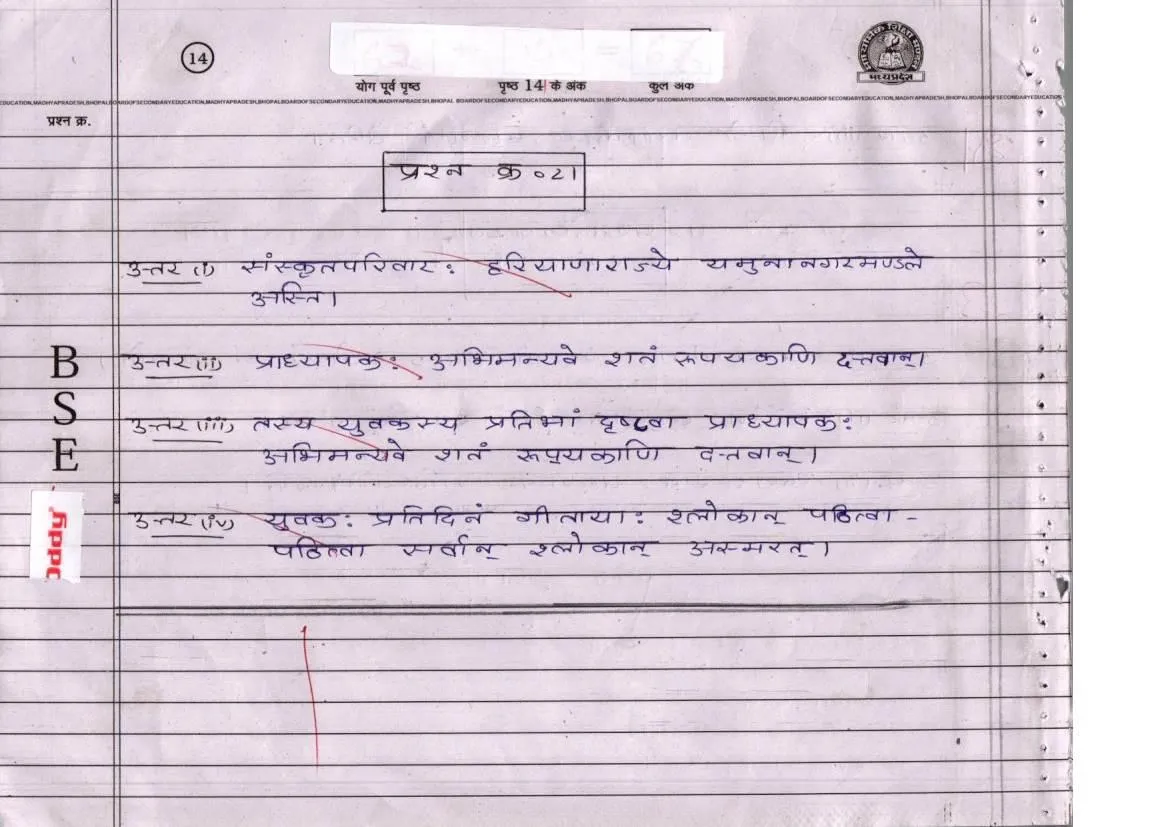 14
योग पूर्व पृष्ठ
पृष्ठ 14 के अंक
कुल अंक
मध्यप्रदेश
EDUCATION,MADHYAPRADESH,BHOPALBOARDOFSECONDARYEDUCATION,MADHYAPRADESH,BHOPALBOARDOFSECONDARYEDUCATION,MADHYAPRADESH,BHOPAL BOARDOFSECONDARYEDUCATION,MADHYAPRADESH,BHOPALBOARDOFSECONDARYEDUCATION,MADHYAPRADESH,BHOPALBOARDOFSECONDARYEDUCATION
प्रश्न क्र.
प्रश्न क्र ० 21
उत्तर (i) संस्कृतपरिवार: हरियाणाराज्ये यमुनानगरमण्डले
अस्ति।
उत्तर (ii) प्राध्यापक: अभिमन्यवे शतं रूपयकाणि दत्तवान्।
उत्तर (iii) तस्य युवकस्य प्रतिभां दृष्ट्वा प्राध्यापक:
अभिमन्यवे शतं रूप्यकाणि दत्तवान्।
उत्तर (iv) युवक: प्रतिदिनं गीताया: श्लोकान् पठित्वा -
पठित्वा सर्वान् श्लोकान् अस्मरत्।
B
S
E
oddy